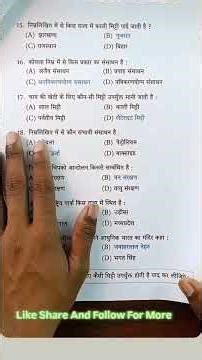 15. निम्नलिखित में से किस राज्य में काली मिट्टी पाई जाती है ?
(A) झारखण्ड (B) गुजरात
(C) राजस्थान (D) बिहार
16. कोयला निम्न में से किस प्रकार का संसाधन है :
(A) अजैव संसाधन (B) प्रवाह संसाधन
(C) अनवीकरणयोग्य संसाधन (D) नवीकरणयोग्य संसाधन
17. चाय की खेती के लिए कौन-सी मिट्टी उपर्युक्त मानी जाती है :
(A) लाल मिट्टी (B) काली मिट्टी
(C) पर्वतीय मिट्टी (D) लैटेराइट मिट्टी
18. निम्नलिखित में से कौन संभावी संसाधन है :
(B) पेट्रोलियम
(D) बाक्साइड
चिपको आन्दोलन किससे सम्बंधित है :
(B) वन संरक्षण
(D) वायु संरक्षण
पार्क किस राज्य में स्थित है :
(B) उड़ीसा
(D) मध्यप्रदेश
आधुनिक भारत का मंदिर कहा :
(B) जवाहरलाल नेहरु
(D) भगत सिंह
मिट्टी उपयुक्त होती है
Like Share And Follow For More